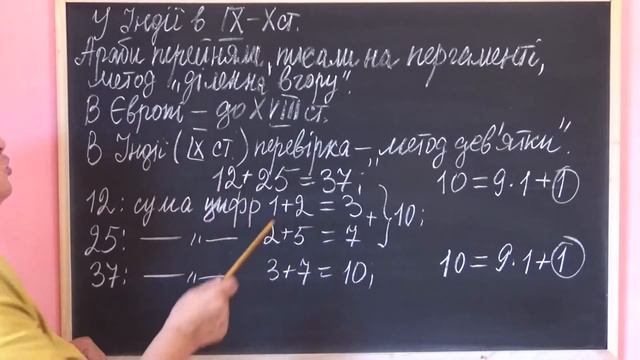 У Індії в IX-Xст.
Араби перейняли, писали на пергаменті,
метод „ділення вгору".
В Європі - до XVIII ст.
В Індії (IX ст.) перевірка - „метод дев'ятки".
12+25=37; 10=9·1+1
12: сума цифр 1+2=3
25: — „ — 2+5=7 + } 10;
37: — „ — 3+7=10; 10=9·1+1